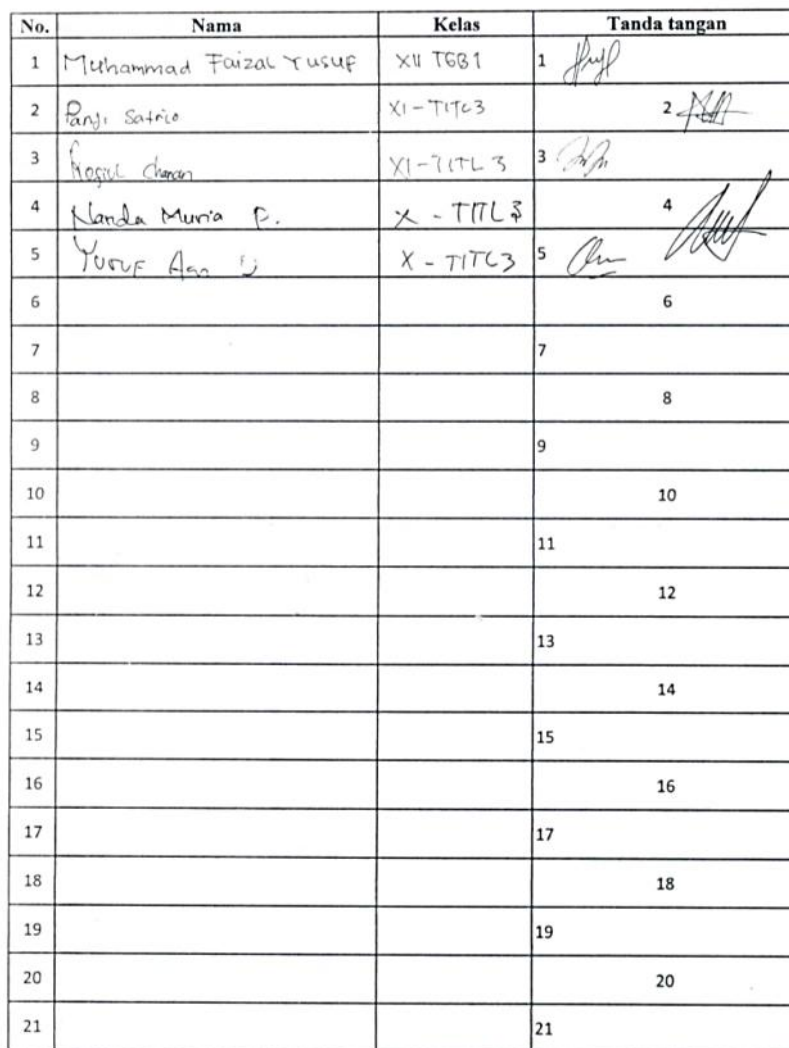 No. Nama Kelas Tanda tangan
1 Muhammad Faizal Yusuf XII TGB1 1
2 Panji Satrio XI-TITL3 2
3 XI-TITL 3 3
4 Nanda Muria P. X - TITL 3 4
5 Yusuf X - TITL3 5
6 6
7 7
8 8
9 9
10 10
11 11
12 12
13 13
14 14
15 15
16 16
17 17
18 18
19 19
20 20
21 21